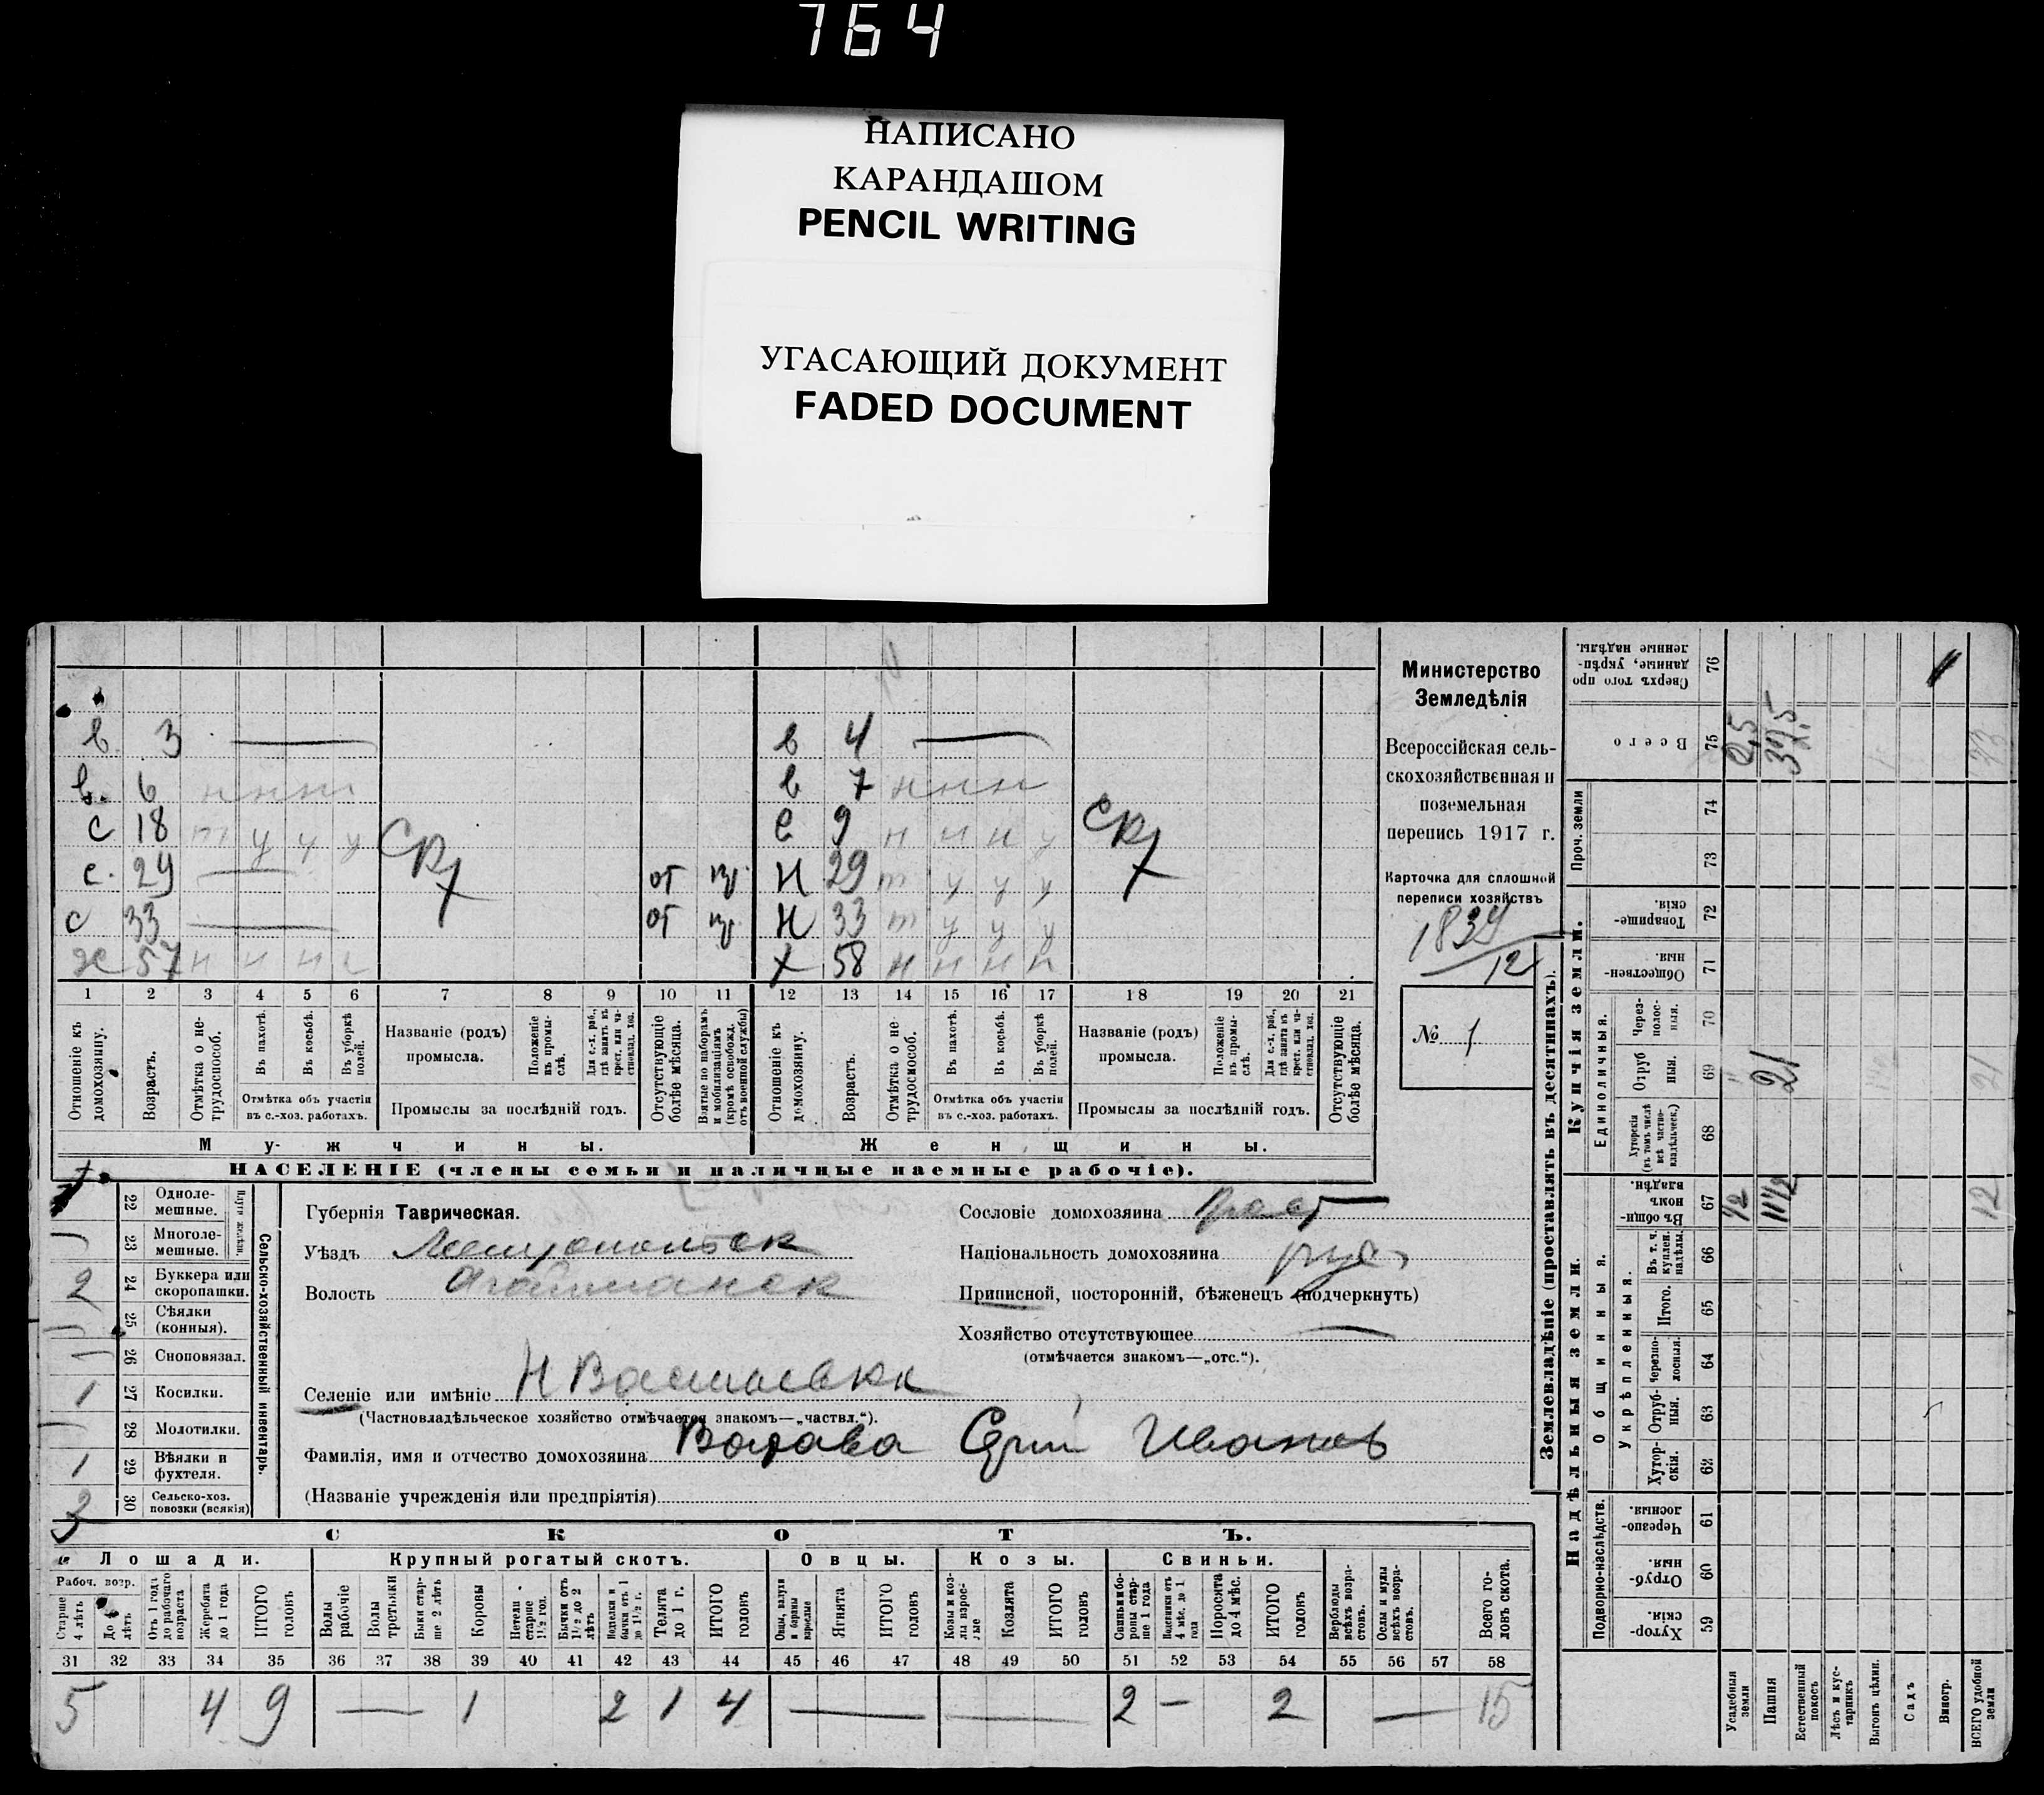 764
НАПИСАНО
КАРАНДАШОМ
PENCIL WRITING
УГАСАЮЩИЙ ДОКУМЕНТ
FADED DOCUMENT
в 3 в 4
в. 6 н н н н в 7 н н н н
с 18 п у у у с 9 н н н у
с. 29 от Н 29 п у у у
с 33 от Н 33 п у у у
х 57 н н н н х 58 н н н н
1 2 3 4 5 6 7 8 9 10 11 12 13 14 15 16 17 18 19 20 21
Отношеніе къ домохозяину.
Возрастъ.
Отмѣтка о не-трудоспособ.
Въ пахотѣ.
Въ косьбѣ.
Въ уборкѣ полей.
Отмѣтка объ участіи
въ с.-хоз. работахъ.
Названіе (родъ)
промысла.
Положеніе въ промы-слѣ.
Для с.-х. раб., гдѣ занятъ въ крест. или ча-стновлад. хоз.
Промыслы за послѣдній годъ.
Отсутствующіе болѣе мѣсяца.
Взятые по наборамъ и мобилизаціямъ (кромѣ освобожд. отъ военной службы)
Отношеніе къ домохозяину.
Возрастъ.
Отмѣтка о не-трудоспособ.
Въ пахотѣ.
Въ косьбѣ.
Въ уборкѣ полей.
Отмѣтка объ участіи
въ с.-хоз. работахъ.
Названіе (родъ)
промысла.
Положеніе въ промы-слѣ.
Для с.-х. раб., гдѣ занята въ крест. или ча-стновлад. хоз.
Промыслы за послѣдній годъ.
Отсутствующіе болѣе мѣсяца.
Мужчины. Женщины.
НАСЕЛЕНІЕ (члены семьи и наличные наемные рабочіе).
Министерство
Земледѣлія
Всероссійская сель-
скохозяйственная и
поземельная
перепись 1917 г.
Карточка для сплошной
переписи хозяйствъ
1834/12
№ 1
22 Одноле-мешные.
23 Многоле-мешные.
2 24 Буккера или скоропашки.
25 Сѣялки (конныя).
26 Сноповязал.
1 27 Косилки.
28 Молотилки.
1 29 Вѣялки и фухтеля.
3 30 Сельско-хоз. повозки (всякія)
Сельско-хозяйственный инвентарь.
Губернія Таврическая.
Уѣздъ Мелитопольск
Волость Агайманск
Селеніе или имѣніе
(Частновладѣльческое хозяйство отмѣчается знакомъ—„частвл.“).
Фамилія, имя и отчество домохозяина Иванов
(Названіе учрежденія или предпріятія)
Сословіе домохозяина
Національность домохозяина рус
Приписной, посторонній, бѣженецъ (подчеркнуть)
Хозяйство отсутствующее
(отмѣчается знакомъ—„отс.“).
СКОТЪ.
Лошади. Крупный рогатый скотъ. Овцы. Козы. Свиньи.
Рабоч. возр.
Старше 4 лѣтъ
До 4 лѣтъ
Отъ 1 года до рабочаго возраста
Жеребята до 1 года
ИТОГО головъ
Волы рабочіе
Волы третьяки
Быки стар-ше 2 лѣтъ
Коровы
Нетели старше 1½ год.
Бычки отъ 1½ до 2 лѣтъ
Подтелки и бычки отъ 1 до 1½ г.
Телята до 1 г.
ИТОГО головъ
Овцы, валухи и бараны взрослые
Ягнята
ИТОГО головъ
Козы и коз-лы взрос-лые
Козлята
ИТОГО головъ
Свиньи и бо-ровы стар-ше 1 года
Подсвинки отъ 4 мѣс. до 1 года
Поросята до 4 мѣс.
ИТОГО головъ
Верблюды всѣхъ возра-стовъ.
Ослы и мулы всѣхъ возра-стовъ.
Всего го-ловъ скота.
31 32 33 34 35 36 37 38 39 40 41 42 43 44 45 46 47 48 49 50 51 52 53 54 55 56 57 58
5 4 9 — 1 2 1 4 — — 2 — 2 — 15
Землевладѣніе (проставлять въ десятинахъ).
Надѣльныя земли. Купчія земли. Проч. земли
Подворно-наслѣдств. Общинныя. Единоличныя.
Укрѣпленныя.
Хутор-скія. 59
Отруб-ныя. 60
Черезпо-лосныя. 61
Хутор-скія. 62
Отруб-ныя. 63
Черезпо-лосныя. 64
Итого. 65
Въ т. ч. куплен. надѣлы. 66
Въ общин-номъ владѣн. 67
Хуторскія (въ томъ числѣ всѣ частно-владѣльческ.) 68
Отруб ныя. 69
Через-полос-ныя. 70
Обществен-ныя. 71
Товарище-скія. 72
73 74
Всего 75
Сверхъ того про данные, укрѣп-ленные надѣлы. 76
Усадебныя земли
Пашня 11½ 21
Естественный покосъ
Лѣсъ и кус-тарникъ
Выгонъ цѣлин.
Садъ
Виногр.
ВСЕГО удобной земли 12 21 33